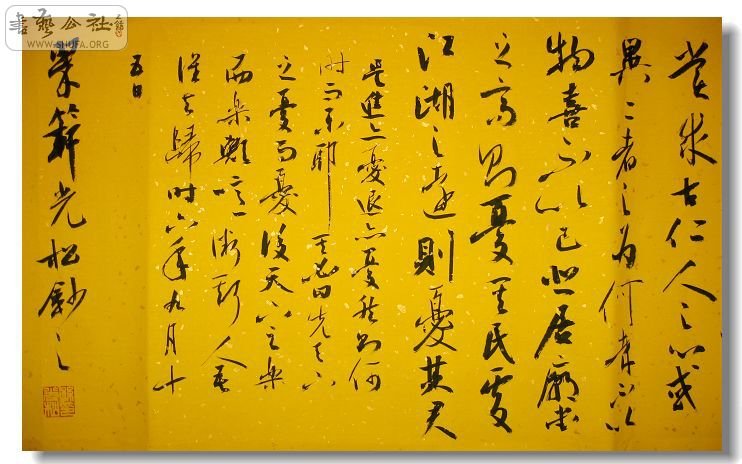 書藝公社
WWW.SHUFA.ORG
嘗求古仁人之心或
異二者之为何哉不以
物喜不以己悲居廟堂
之高则憂其民處
江湖之遠則憂其君
是進亦憂退亦憂然则何
时而樂耶其必曰先天下
之憂而憂後天下之樂
而樂歟噫微斯人吾
谁与歸时六年九月十
五日
光松鈔之